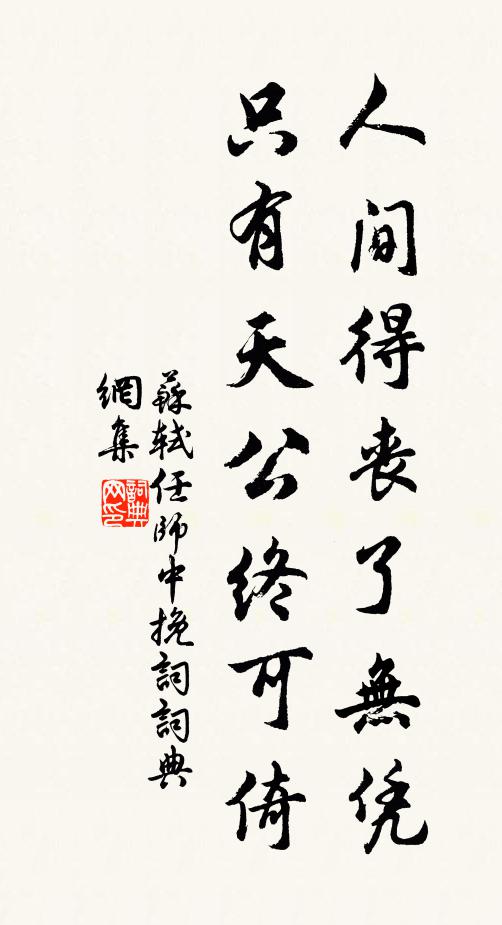 人间得丧了無凭
只有天公终可倚
蘇轼任師中挽詞詞典
網集
詞典
网印